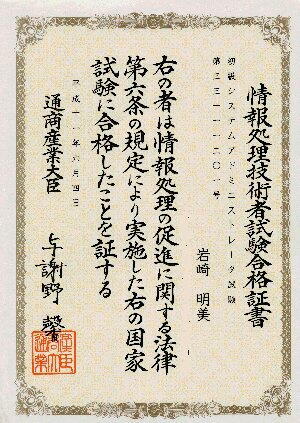 情報処理技術者試験合格証書
初級システムアドミニストレータ試験
岩崎 明美
右の者は情報処理の促進に関する法律
第六条の規定により実施した右の国家
試験に合格したことを証する
平成十一年六月四日
通商産業大臣
与謝野 馨